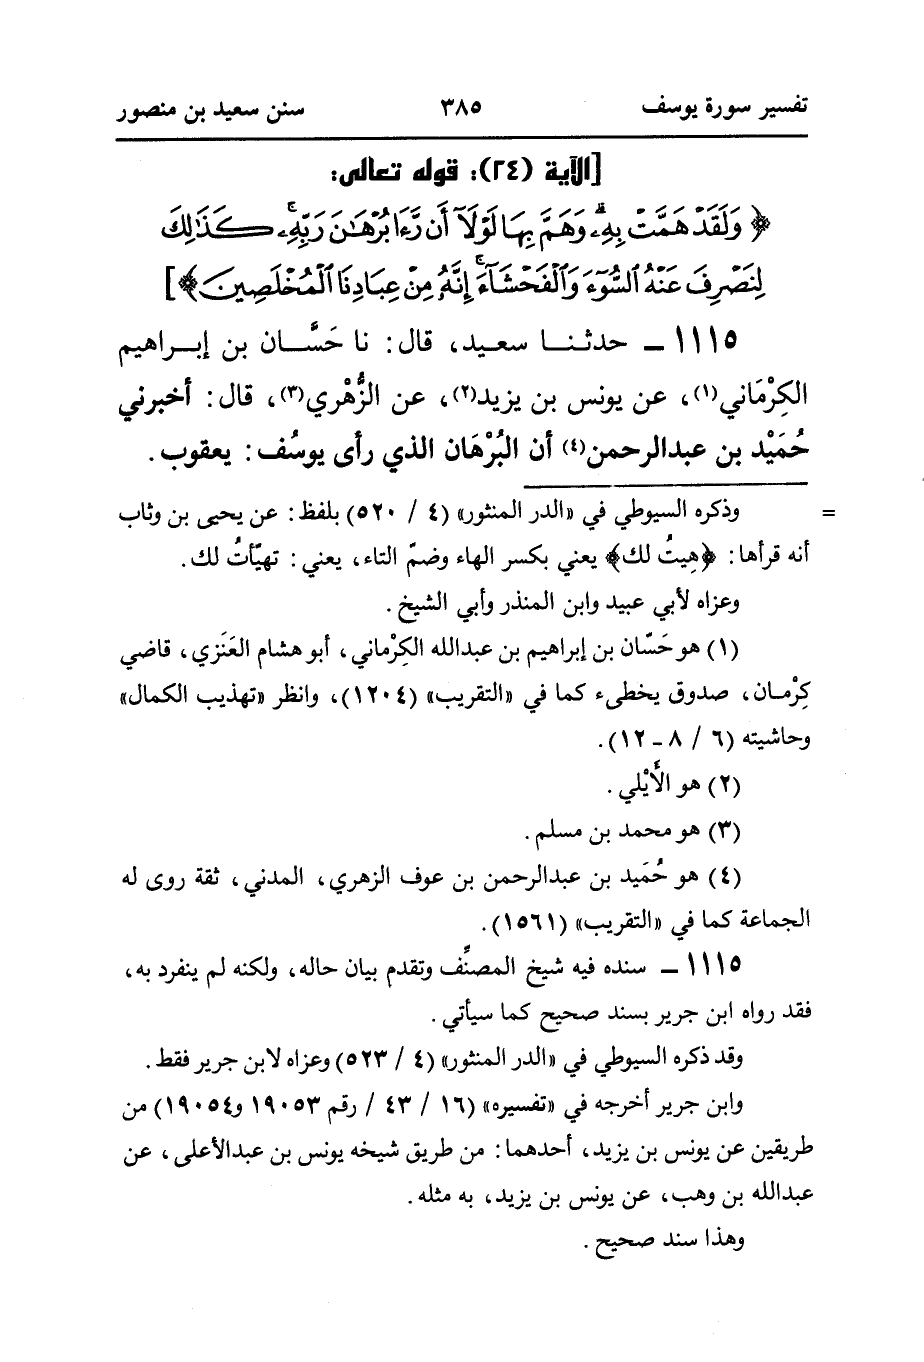 تفسير سورة يوسف ٣٨٥ سنن سعيد بن منصور
[الآية (٢٤): قوله تعالى:
﴿وَلَقَدْ هَمَّتْ بِهِۦۖ وَهَمَّ بِهَا لَوْلَآ أَن رَّءَا بُرْهَٰنَ رَبِّهِۦۚ كَذَٰلِكَ
لِنَصْرِفَ عَنْهُ ٱلسُّوٓءَ وَٱلْفَحْشَآءَۚ إِنَّهُۥ مِنْ عِبَادِنَا ٱلْمُخْلَصِينَ﴾]
١١١٥ ـ حدثنا سعيد، قال: نا حَسَّان بن إبراهيم
الكِرْمَاني(١)، عن يونس بن يزيد(٢)، عن الزُّهْري(٣)، قال: أخبرني
حُمَيْد بن عبدالرحمن(٤) أن البُرْهَان الذي رأى يوسُف: يعقوب.
= وذكره السيوطي في «الدر المنثور» (٤ / ٥٢٠) بلفظ: عن يحيى بن وثاب
أنه قرأها: ﴿هِيتُ لك﴾ يعني بكسر الهاء وضمّ التاء، يعني: تهيّأتُ لك.
وعزاه لأبي عبيد وابن المنذر وأبي الشيخ.
(١) هو حَسّان بن إبراهيم بن عبدالله الكِرْماني، أبو هشام العَنَزي، قاضي
كِرْمان، صدوق يخطىء كما في «التقريب» (١٢٠٤)، وانظر «تهذيب الكمال»
وحاشيته (٦ / ٨ ـ ١٢).
(٢) هو الأَيْلي.
(٣) هو محمد بن مسلم.
(٤) هو حُمَيد بن عبدالرحمن بن عوف الزهري، المدني، ثقة روى له
الجماعة كما في «التقريب» (١٥٦١).
١١١٥ ـ سنده فيه شيخ المصنِّف وتقدم بيان حاله، ولكنه لم ينفرد به،
فقد رواه ابن جرير بسند صحيح كما سيأتي.
وقد ذكره السيوطي في «الدر المنثور» (٤ / ٥٢٣) وعزاه لابن جرير فقط.
وابن جرير أخرجه في «تفسيره» (١٦ / ٤٣ / رقم ١٩٠٥٣ و١٩٠٥٤) من
طريقين عن يونس بن يزيد، أحدهما: من طريق شيخه يونس بن عبدالأعلى، عن
عبدالله بن وهب، عن يونس بن يزيد، به مثله.
وهذا سند صحيح.